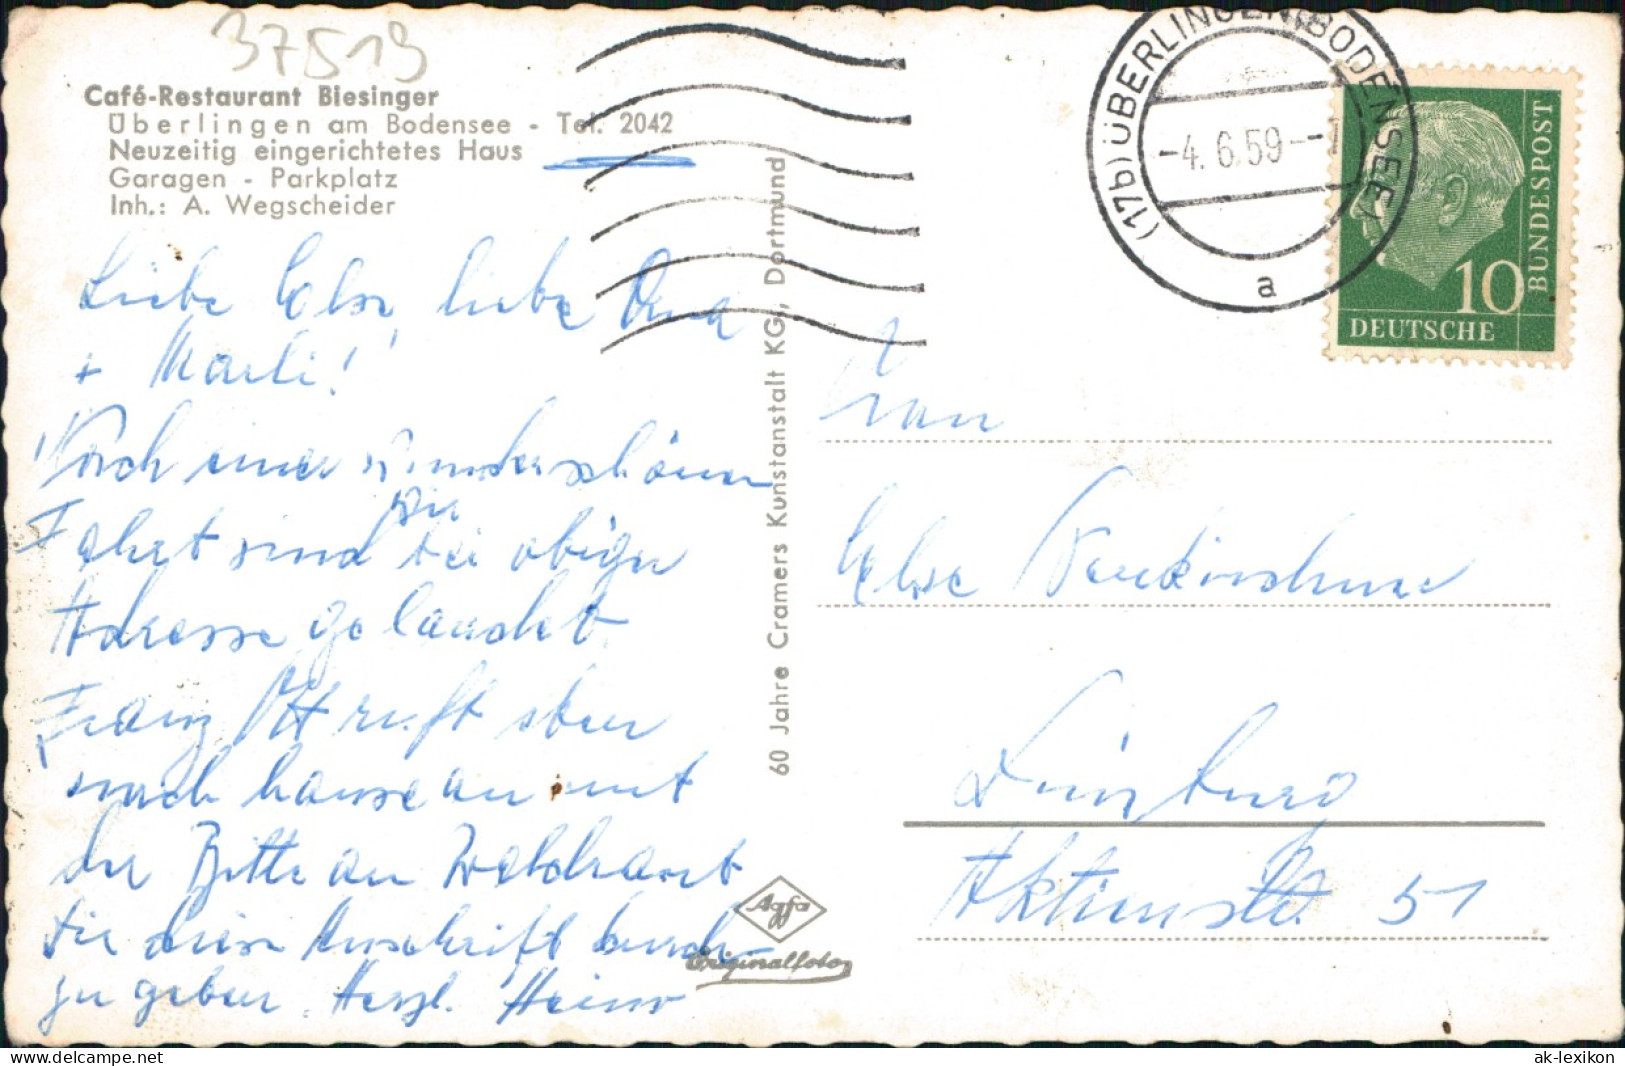 37519
Café-Restaurant Biesinger
Überlingen am Bodensee - Tel. 2042
Neuzeitig eingerichtetes Haus
Garagen - Parkplatz
Inh.: A. Wegscheider
Liebe Else, liebe Oma
+ Marli!
Nach einer wunderschönen
Fahrt sind wir bei obiger
Adresse gelandet.
Franz Ott ruft eben
nach hause an mit
der Bitte an Waldraut
Dir diese Anschrift durch
zu geben. Herzl. Heinr
60 Jahre Cramers Kunstanstalt KG, Dortmund
Agfa
Originalfoto
(17b) ÜBERLINGEN (BODENSEE)
-4. 6. 59--1
a
10
DEUTSCHE
BUNDESPOST
Frau
Else
Duisburg
Aktienstr. 51
ak-lexikon.com
https://www.delcampe.net
ak-lexikon